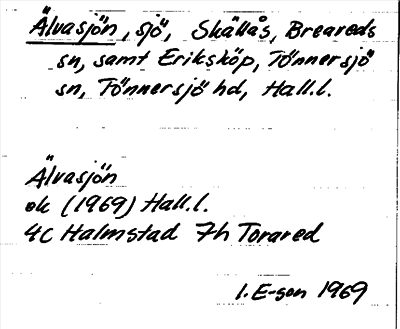 Älvasjön, sjö, Skällås, Breareds
sn, samt Eriksköp, Tönnersjö
sn, Tönnersjö hd, Hall.l.
Älvasjön
ek (1969) Hall.l.
4C Halmstad 7h Torared
I. E-son 1969